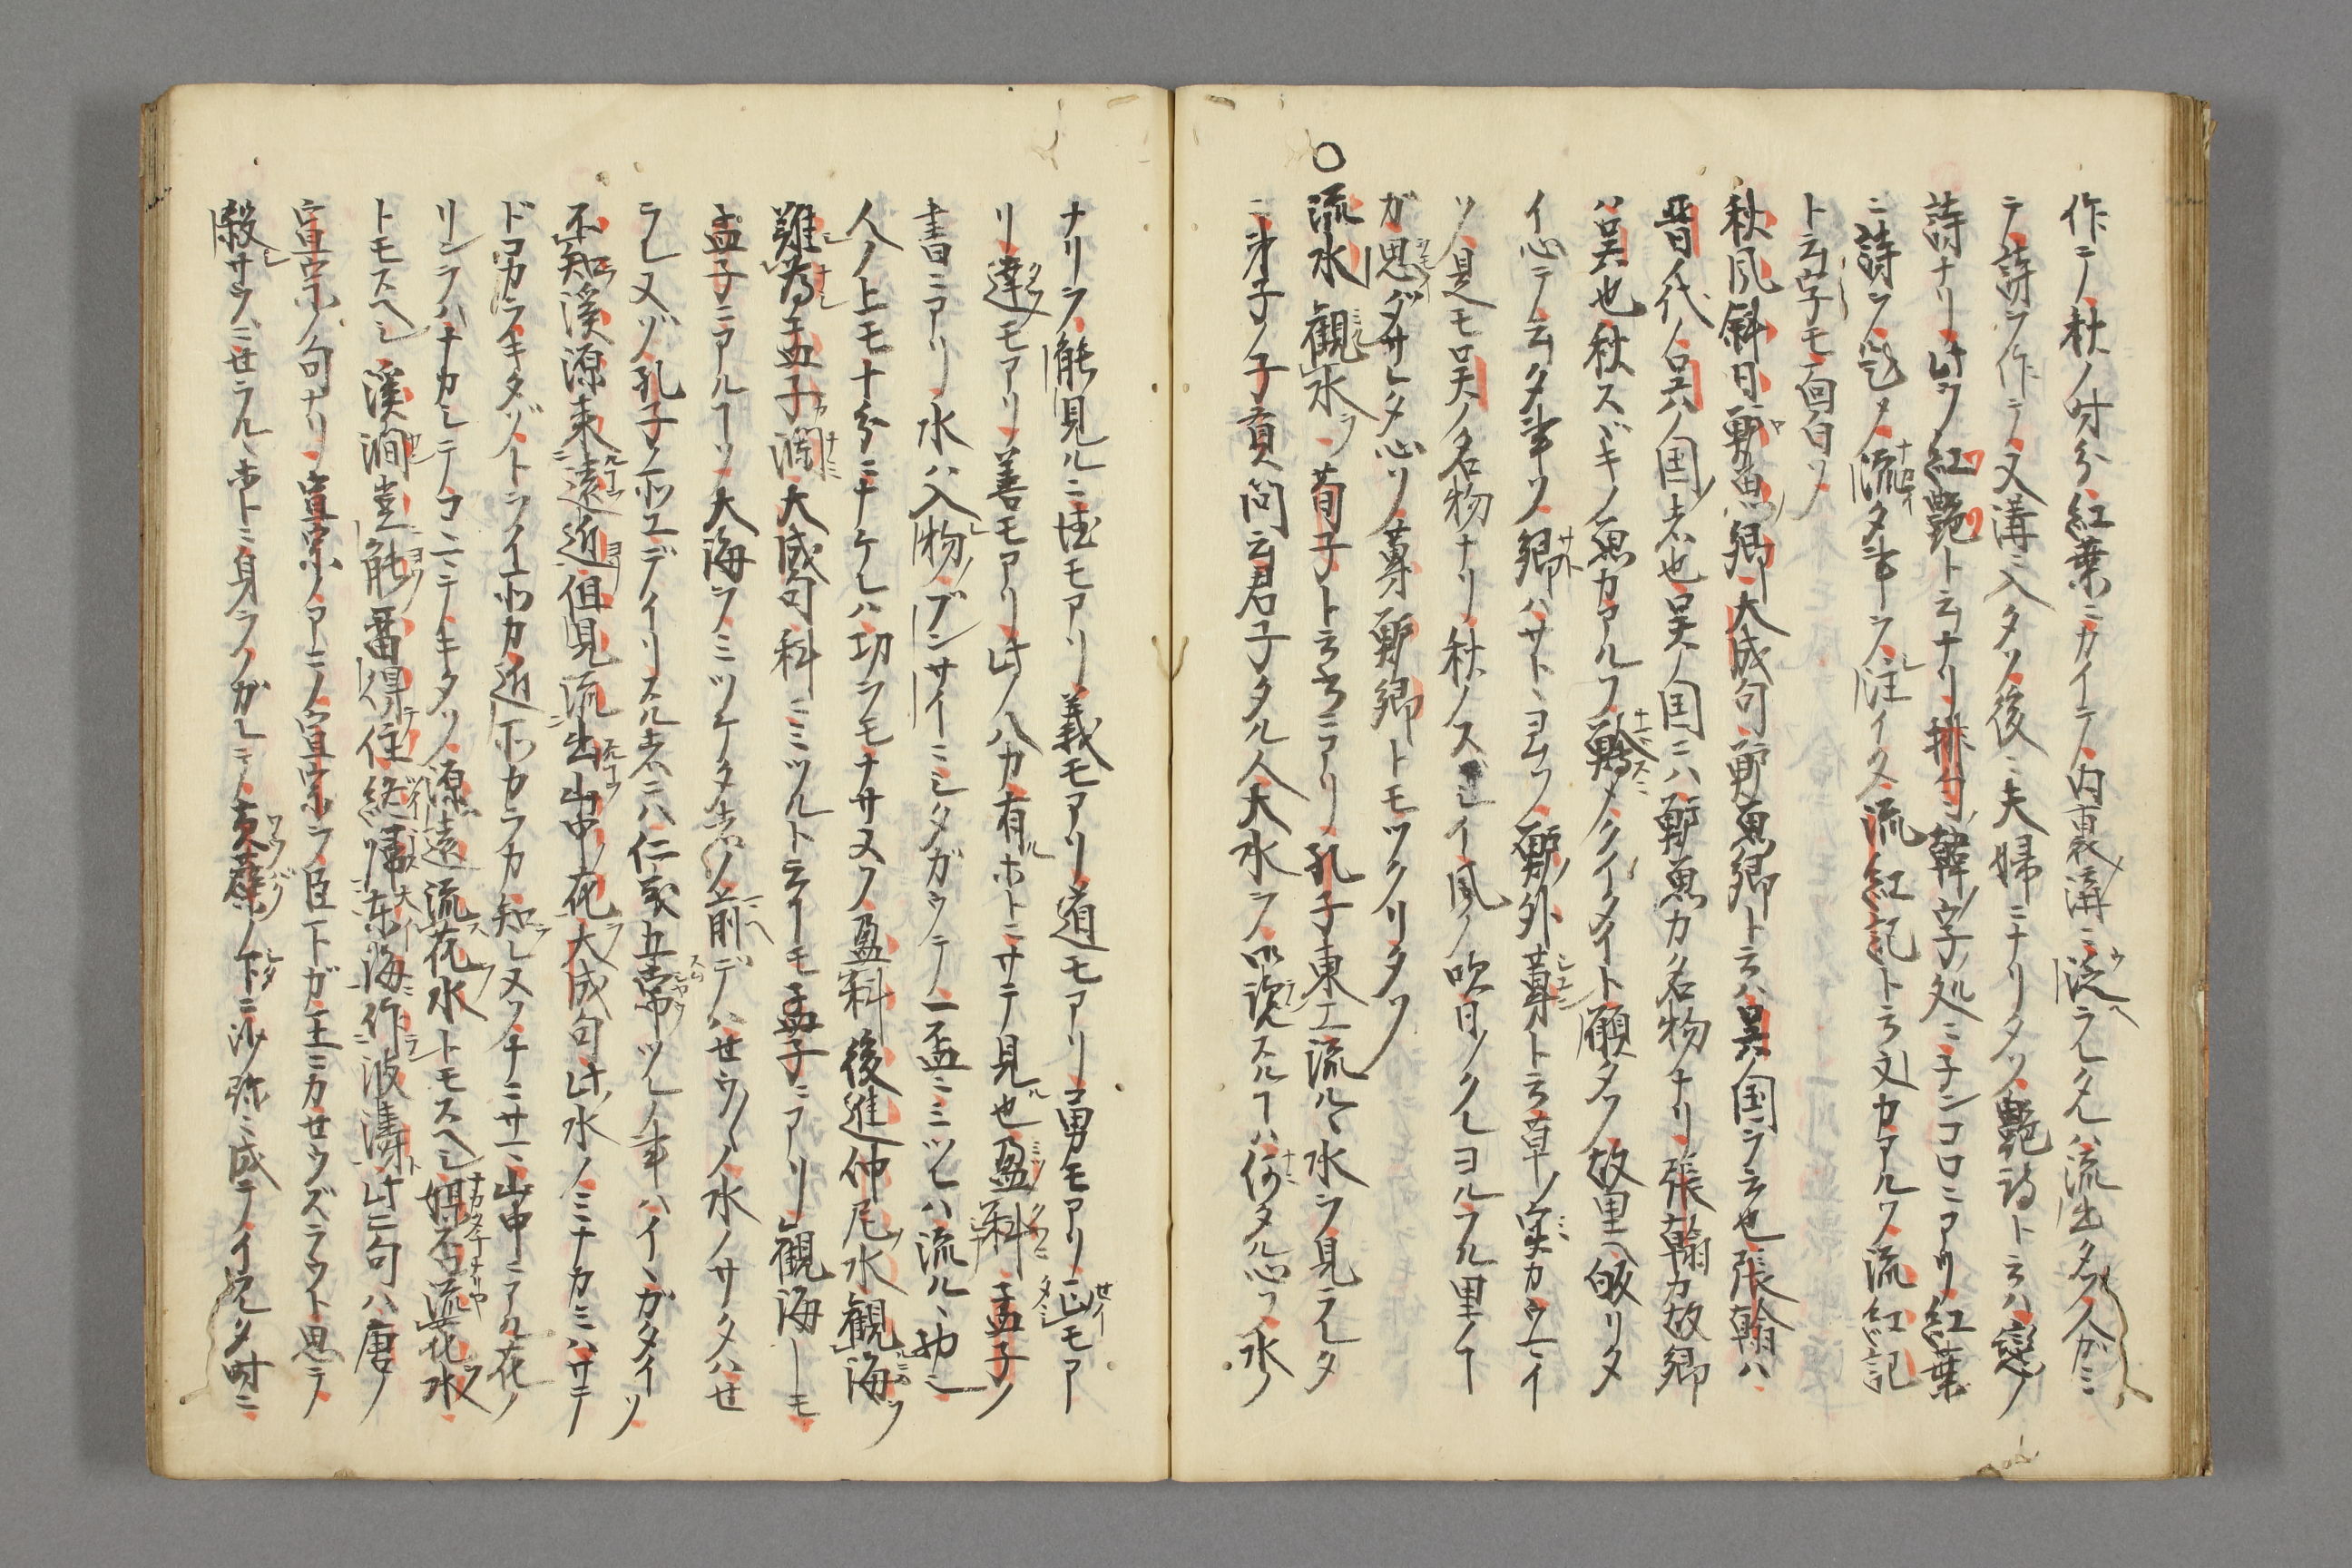 作ニノ秋ノ時分紅葉ニカイテ内裏ノ溝ニ泛ラレタレハ流出タヲ人カミ
テ詩ヲ作テ又溝ニ入タソ後ニ夫婦ニナリタソ艶詩ト云ハ恋ノ
詩ナリ此ヲ紅艶ト云ナリ排句ヲ韓字ノ処ニチンコロニアリ紅葉
ニ詩ヲ題メ流タ事ヲ注イタ流紅記ト云文カアルソ流紅記
ト云字モ面白ソ
秋風斜日鱸魚郷大成句鱸魚郷ト云ハ呉国ヲ云也張翰ハ
晋ノ代ノ呉ノ国ノ者也呉ノ国ニハ鱸魚カ名物ナリ張翰カ故郷
ハ呉也秋スズキノ魚カアルヲ鱠メクイタイト願タソ故里ヘ皈リタ
イ心テノ云タ事ソ郷ハサトヽヨムソ鱸外ノ蓴ト云草ノ実カウマイ
ソ是モ呉ノ名物ナリ秋ノスヽシイ風ノ吹日ノクレヨルフル里ノコト
ガ思ダサレタ心ソ蓴鱸郷トモツクリタソ
○流水 観水ヲ荀子ト云書ニアリ孔子東エ流ルヽ水ヲ見ラレタ
ニ弟子ノ子貢問云君子タル人大水ヲ御覧スルコトハ何タル心ソ水ノ
ナリヲ能見ルニ徳モアリ義モアリ道モアリ勇モアリ正モア
リ達モアリ善モアリ此ノ八カ有ホトニサテ見也盈科孟子ノ
書ニアリ水ハ入物ノブンサイニシタガウテ一盃ニミツレハ流ルヽ物ミ
人ノ上モ十分ニナケレハ功ヲモナサヌソ盈科後進仲尼水観海ソ
難為孟子瀾大成句科ニミツルト云イモ孟子ニアリ観海ーモ
孟子ニアルコトソ大海ヲミツケタ者ノ前デハセウノ水ノサタハせ
ラレヌゾ孔子ノ所エデイリスル者ニハ仁義五常ツレノ事ハイヽガタイソ
不知溪源来遠近但見流出山中花大成句此水ノミナカミハサテ
ドコカラキタゾトヲイ所カ近所カラカ知レヌソナニサマ山中ニアル花ノ
リンラハナカシテコニテキタソ源遠流花水トモスヘシ娟石流花水
トモスヘシ溪澗豈能留得住終帰東海作波濤此二句ハ唐ノ
宣宗ノ句ナリ宣宗ノアニノ宣宗ヲ臣下ガ王ニカせウズラウト思テ
殺サウズせラルヽホトニ身ヲノガレテノ黄蘗ノ下ニ沙弥ニ成テノイラレタ時ニ